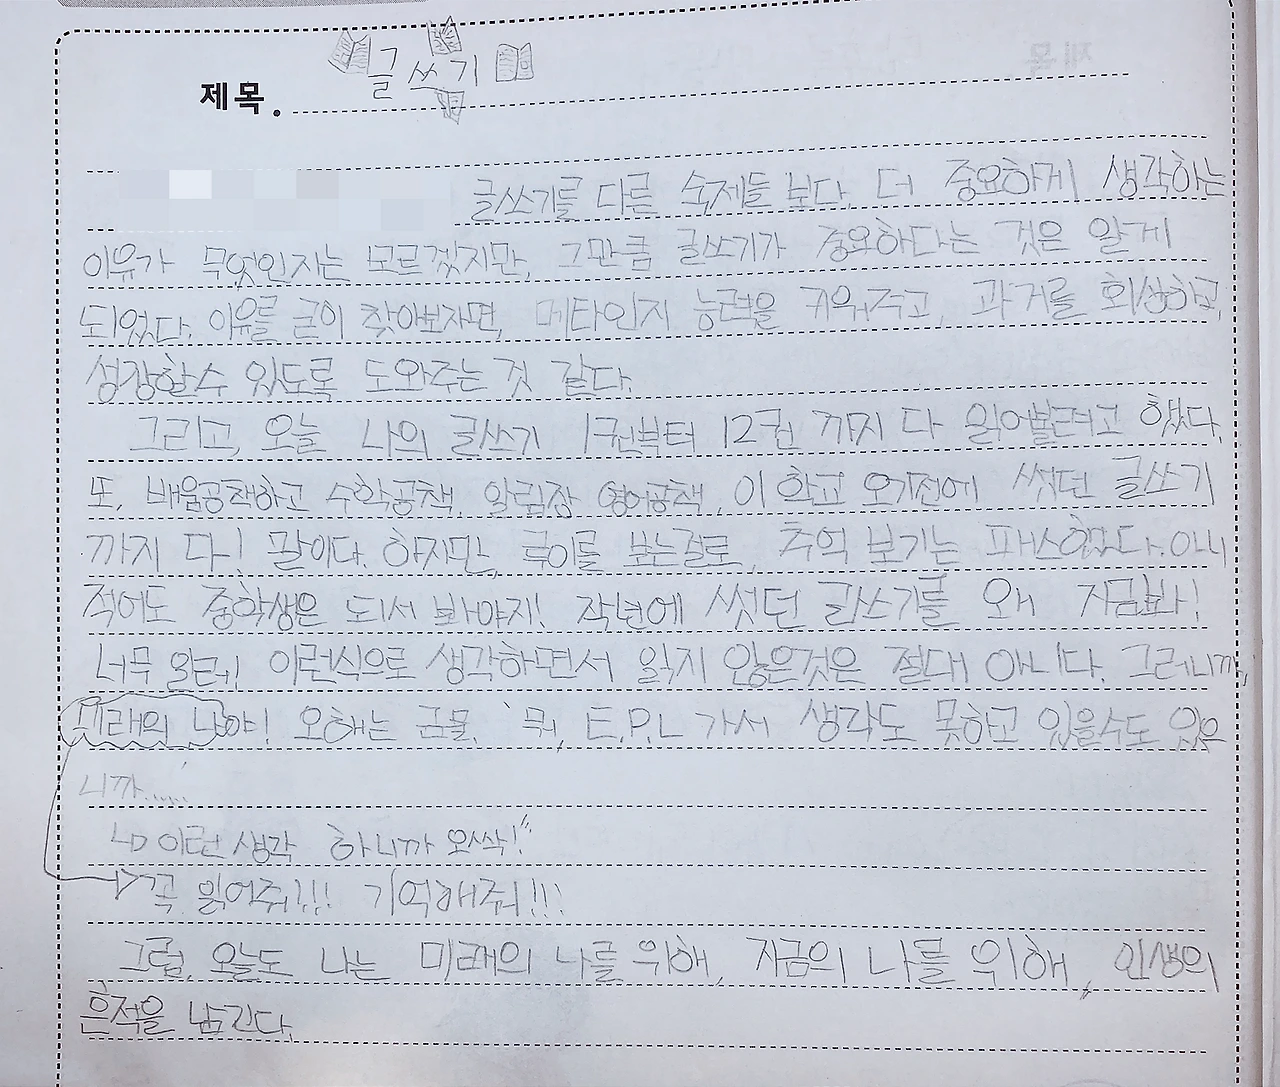 글쓰기
제목.
글쓰기를 다른 숙제들 보다. 더 중요하게 생각하는
이유가 무엇인지는 모르겠지만, 그만큼 글쓰기가 중요하다는 것은 알게
되었다. 이유를 굳이 찾아보자면, 메타인지 능력을 키워주고, 과거를 회상하고,
성장할수 있도록 도와주는 것 같다.
그리고, 오늘 나의 글쓰기 1권부터 12권 까지 다 읽어볼려고 했다.
또, 배움공책하고 수학공책, 알림장 영어공책, 이 학교 오기전에 썼던 글쓰기
까지 다! 말이다. 하지만, 루이를 보는걸로, 추억 보기는 패스했다. 아니
적어도 중학생은 되서 봐야지! 작년에 썼던 글쓰기를 왜 지금봐!
너무 일러! 이런식으로 생각하면서 읽지 않은것은 절대 아니다. 그러니까,
미래의 나야! 오해는 금물, 뭐, E.P.L 가서 생각도 못하고 있을수도 있으
니까.....
이런 생각 하니까 오싹!
꼭 읽어줘!!! 기억해줘!!!
그럼, 오늘도 나는 미래의 나를 위해, 지금의 나를 위해, 인생의
흔적을 남긴다.